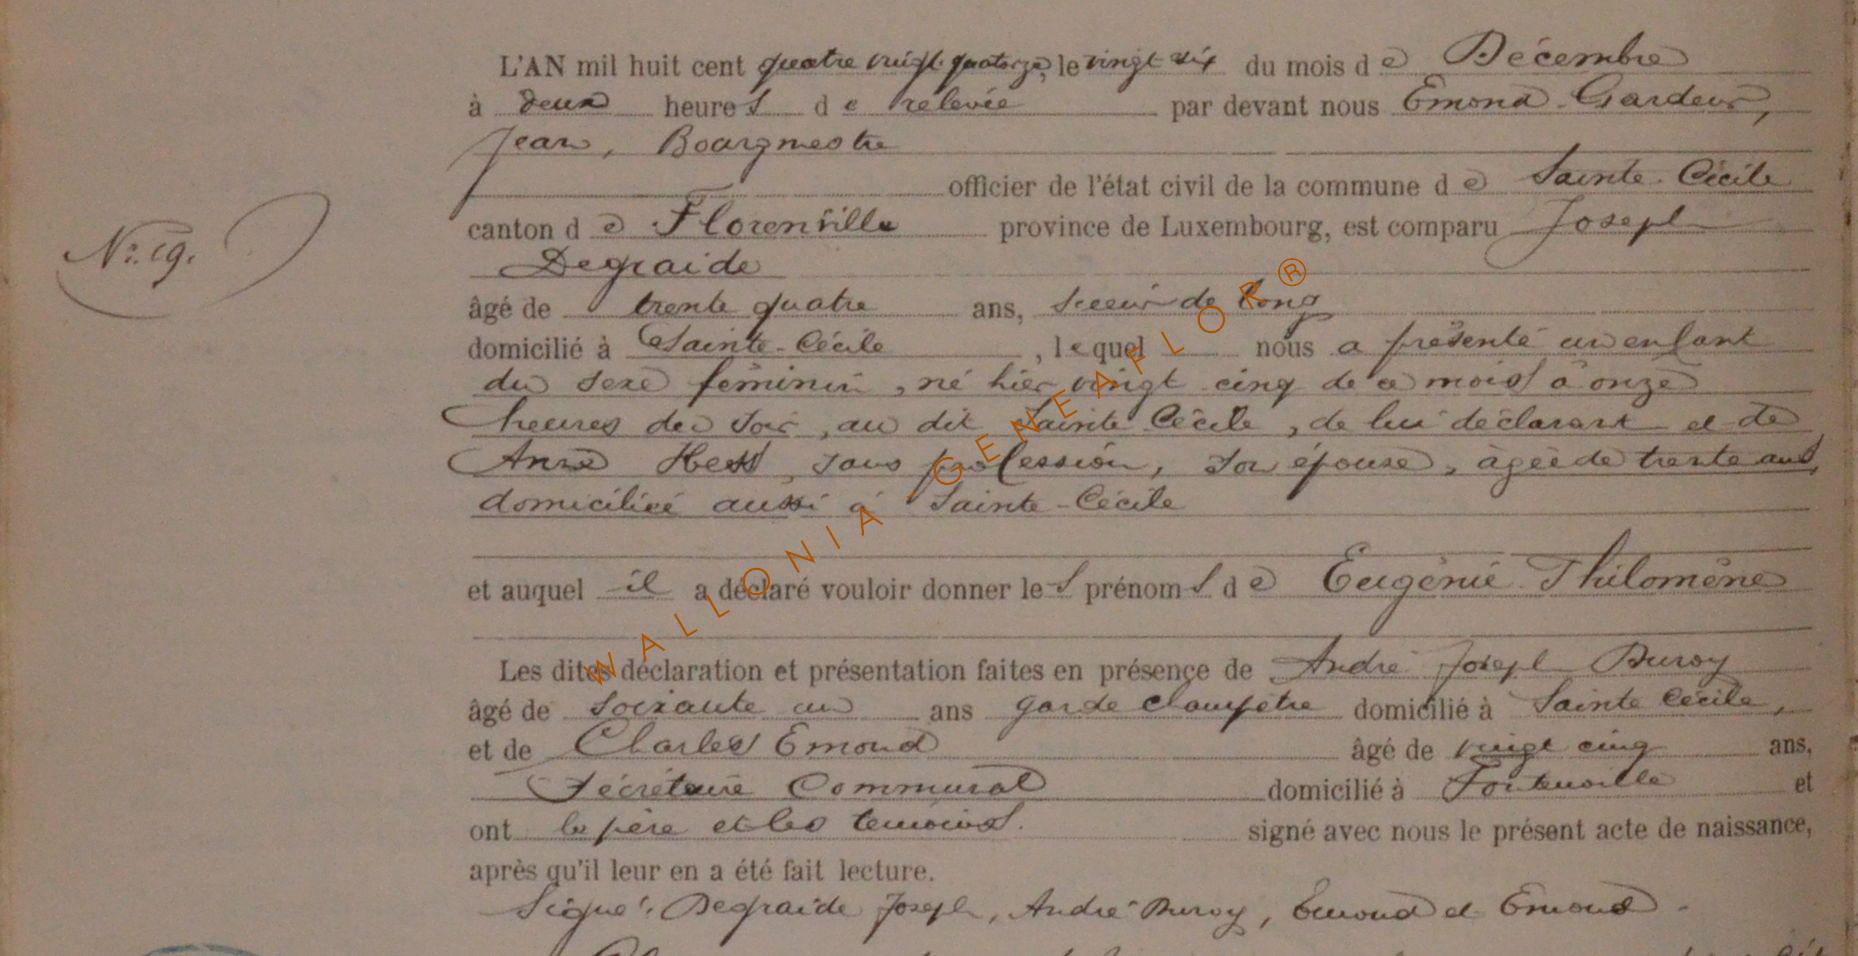 L'AN mil huit cent quatre vingt quatorze, le vingt six du mois de Décembre
à deux heures de relevée par devant nous Emond Gardeur,
Jean, Bourgmestre
officier de l'état civil de la commune de Sainte-Cécile
N° 19.
canton de Florenville province de Luxembourg, est comparu Joseph
Degraide
âgé de trente quatre ans, scieur de long
domicilié à Sainte-Cécile, lequel nous a présenté un enfant
du sexe féminin, né hier vingt cinq de ce mois à onze
heures du soir, au dit Sainte Cécile, de lui déclarant et de
Anne Hess, sans profession, son épouse, âgée de trente ans,
domiciliée aussi à Sainte-Cécile
et auquel il a déclaré vouloir donner les prénoms de Eugénie Philomène
Les dites déclaration et présentation faites en présence de André Joseph Duroy
âgé de soixante un ans garde champêtre domicilié à Sainte Cécile,
et de Charles Emond âgé de vingt cinq ans,
Sécrétaire Communal domicilié à Fontenoille et
ont le père et les témoins signé avec nous le présent acte de naissance,
après qu'il leur en a été fait lecture.
Signé: Degraide Joseph, André Duroy, Emond et Emond.
WALLONIA GENEAFLOR®